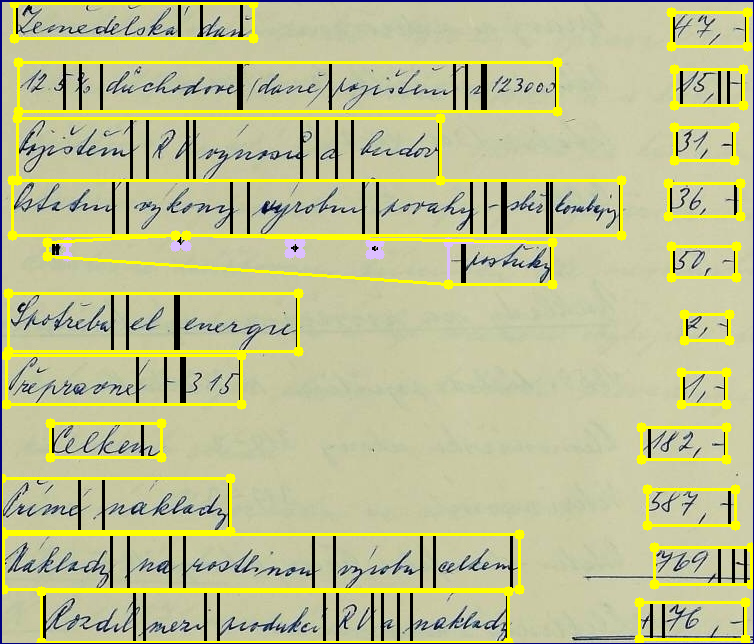 Zemědělská daň 47,-
12.5% důchodové /daně/ pojištění z 123000 15,-
Pojištění RV výnosů a budov 31,-
Ostatní výkony výrobní povahy - sběr kombajny 36,-
" " " " - postřiky 50,-
Spotřeba el energie 2,-
Přepravné - 315 1,-
Celkem 182,-
Přímé náklady 587,-
Náklady na rostlinou výrobu celkem 769,-
Rozdíl mezi produkcí RV a náklady +76,-